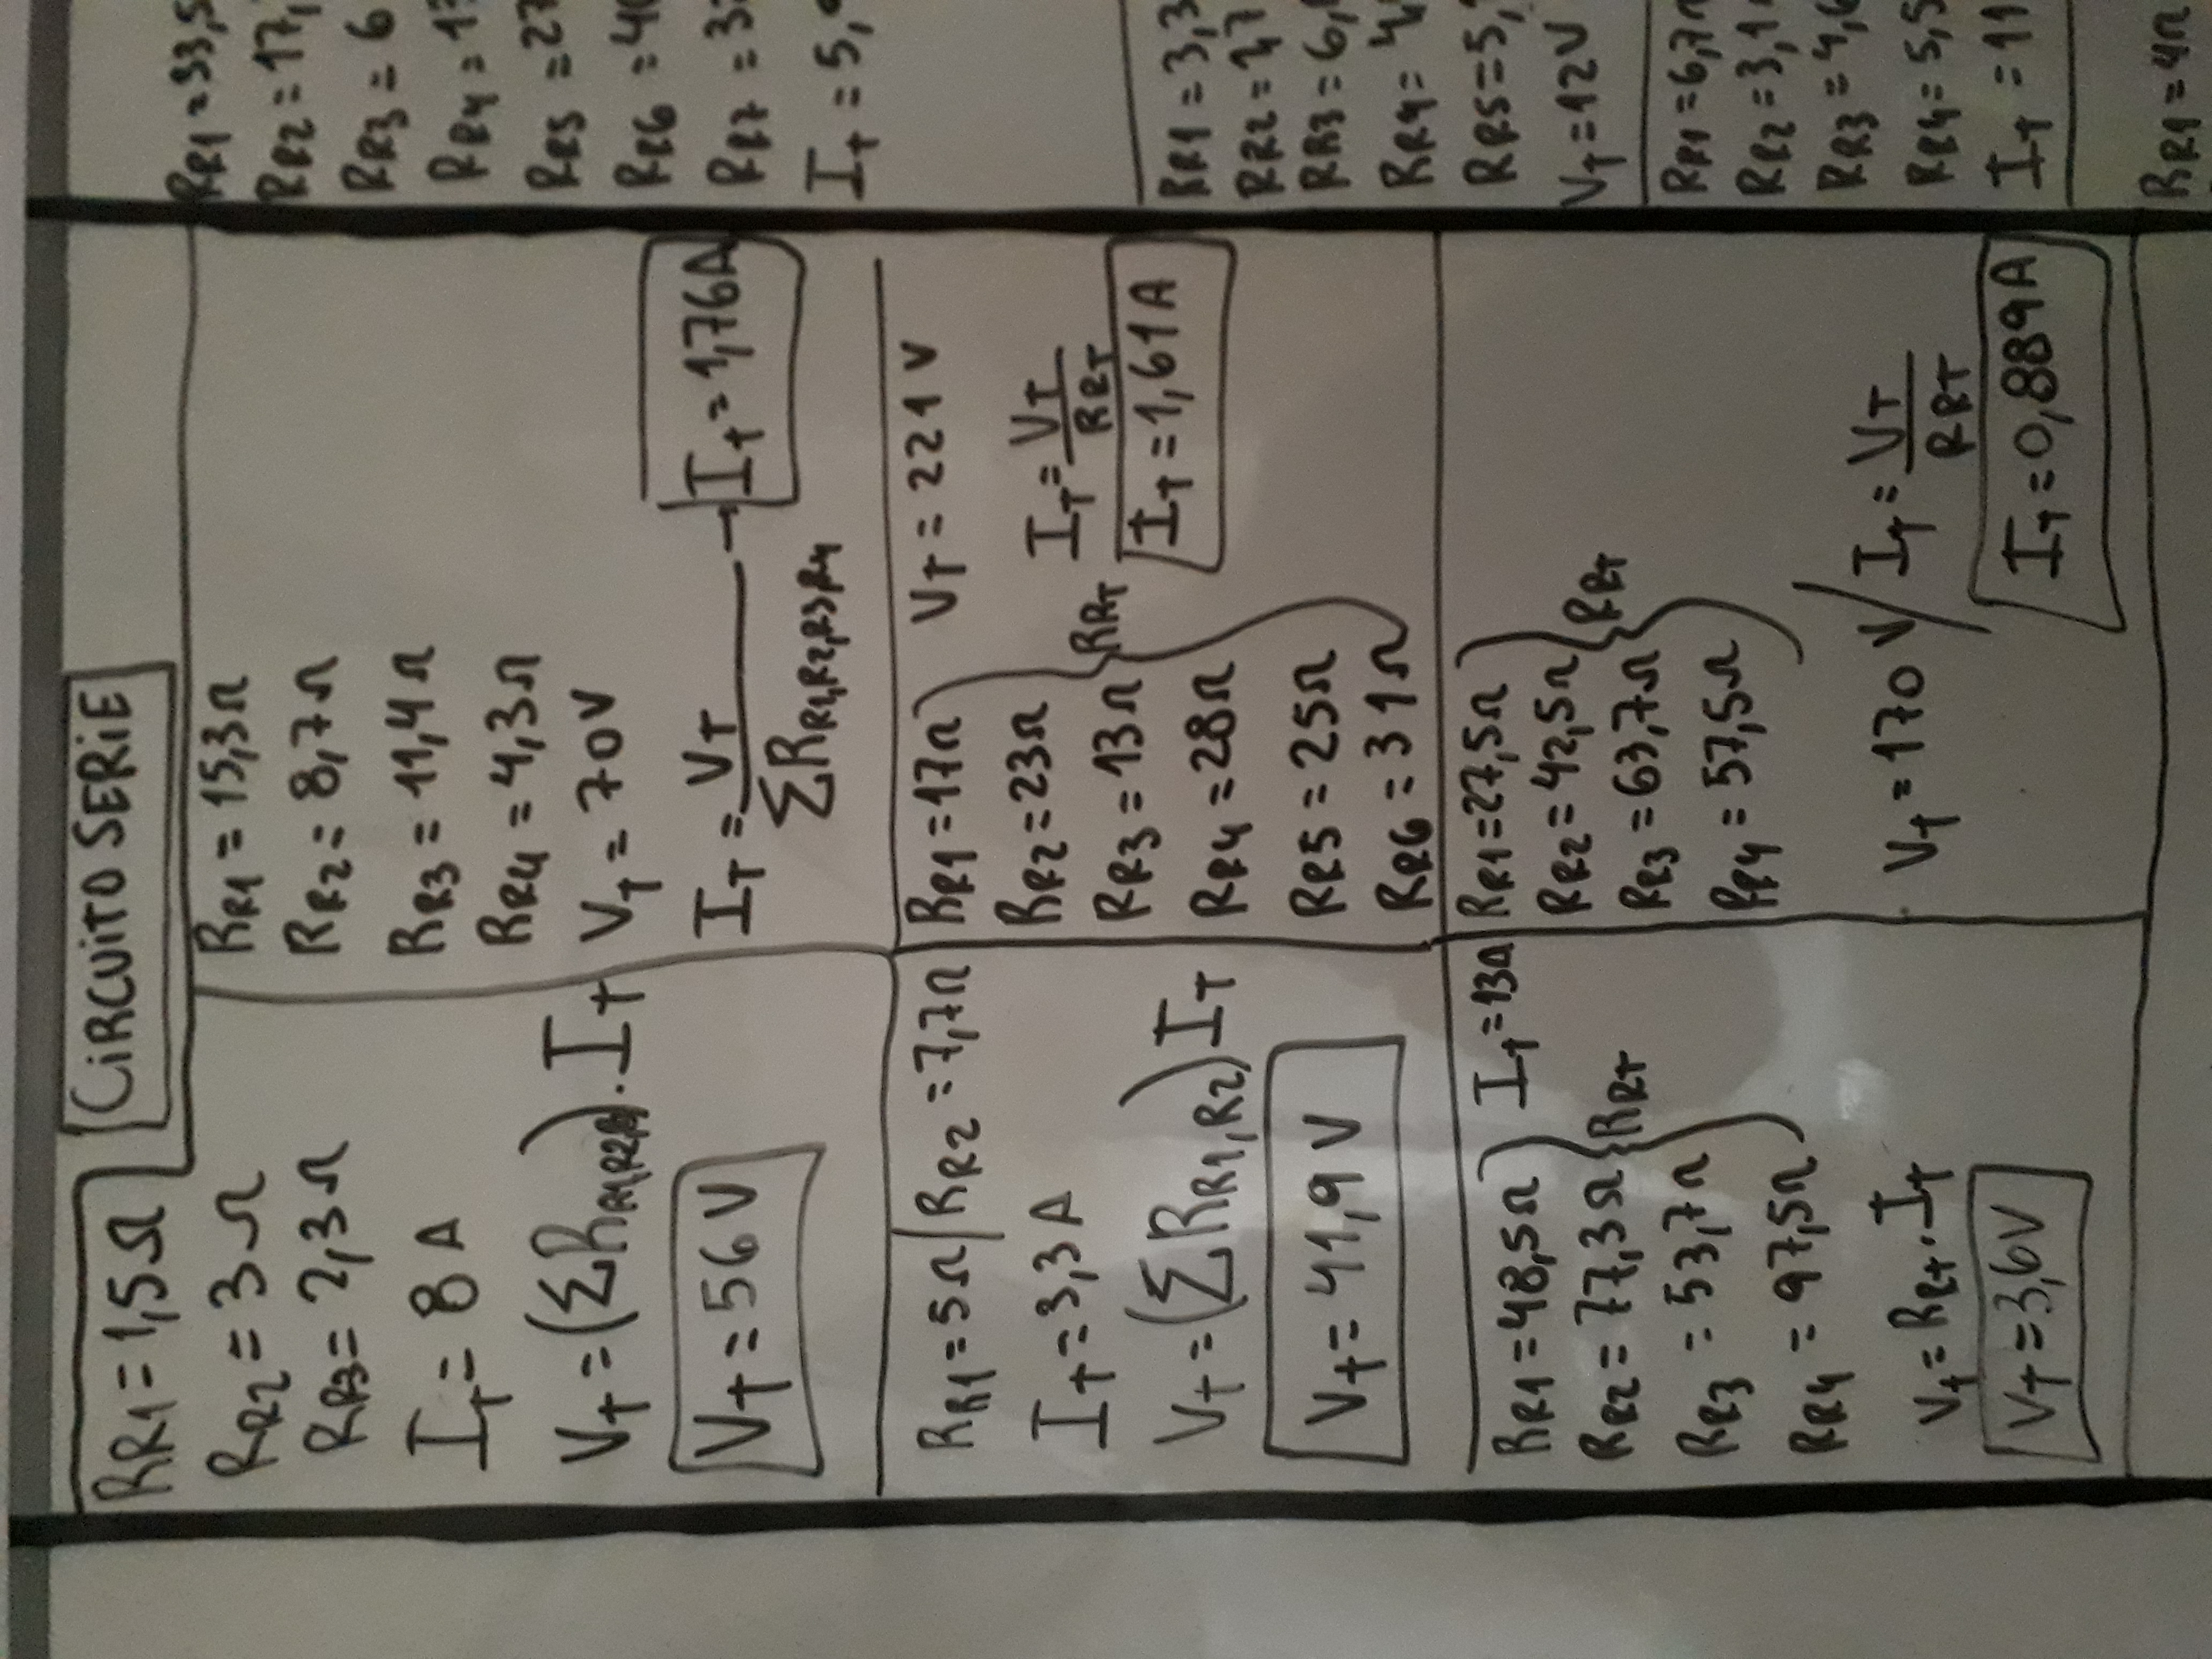 CIRCUITO SERIE
RR1 = 1,5Ω
RR2 = 3Ω
RR3 = 2,3Ω
IT = 8 A
VT = (ΣRR1,R2,R3) . IT
VT = 56 V
RR1 = 15,3Ω
RR2 = 8,7Ω
RR3 = 11,4Ω
RR4 = 4,3Ω
VT = 70V
IT = VT / ΣRR1,R2,R3,R4 → IT = 1,76A
RR1 = 5Ω / RR2 = 7,7Ω
IT = 3,3 A
VT = (ΣRR1,R2) IT
VT = 41,9 V
RR1 = 17Ω
RR2 = 23Ω
RR3 = 13Ω
RR4 = 28Ω
RR5 = 25Ω
RR6 = 31Ω
RRT
VT = 221 V
IT = VT / RRT
IT = 1,61 A
RR1 = 48,5Ω
RR2 = 77,3Ω
RR3 = 53,7Ω
RR4 = 97,5Ω
RRT
IT = 13A
VT = RRT . IT
VT = 3,6V
RR1 = 27,5Ω
RR2 = 42,5Ω
RR3 = 63,7Ω
RR4 = 57,5Ω
RRT
VT = 170 V / IT = VT / RRT
IT = 0,889A
RR1 = 33,5
RR2 = 17,
RR3 = 6
RR4 =
RR5 = 27
RR6 =
RR7 =
IT = 5,
RR1 = 3,3
RR2 =
RR3 = 6,
RR4 =
RR5 = 5,
VT = 12V
RR1 = 6,7Ω
RR2 = 3,1
RR3 = 4,6
RR4 = 5,5
IT = 11
RR1 = 4Ω